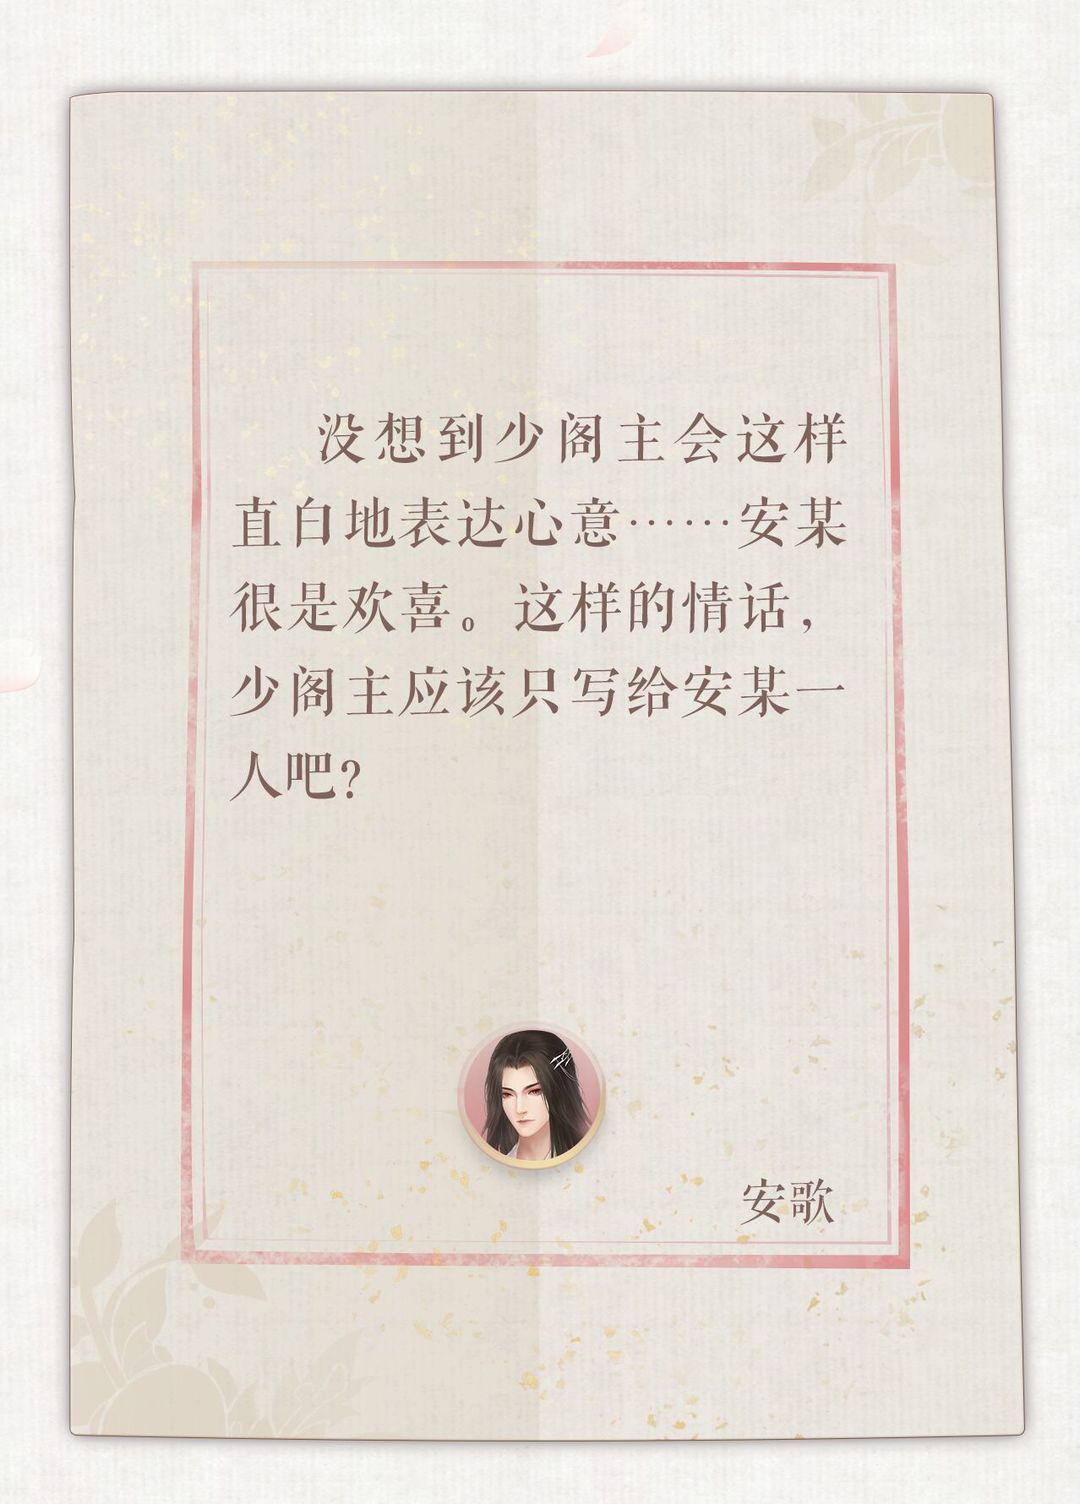 没想到少阁主会这样
直白地表达心意……安某
很是欢喜。这样的情话，
少阁主应该只写给安某一
人吧？
安歌